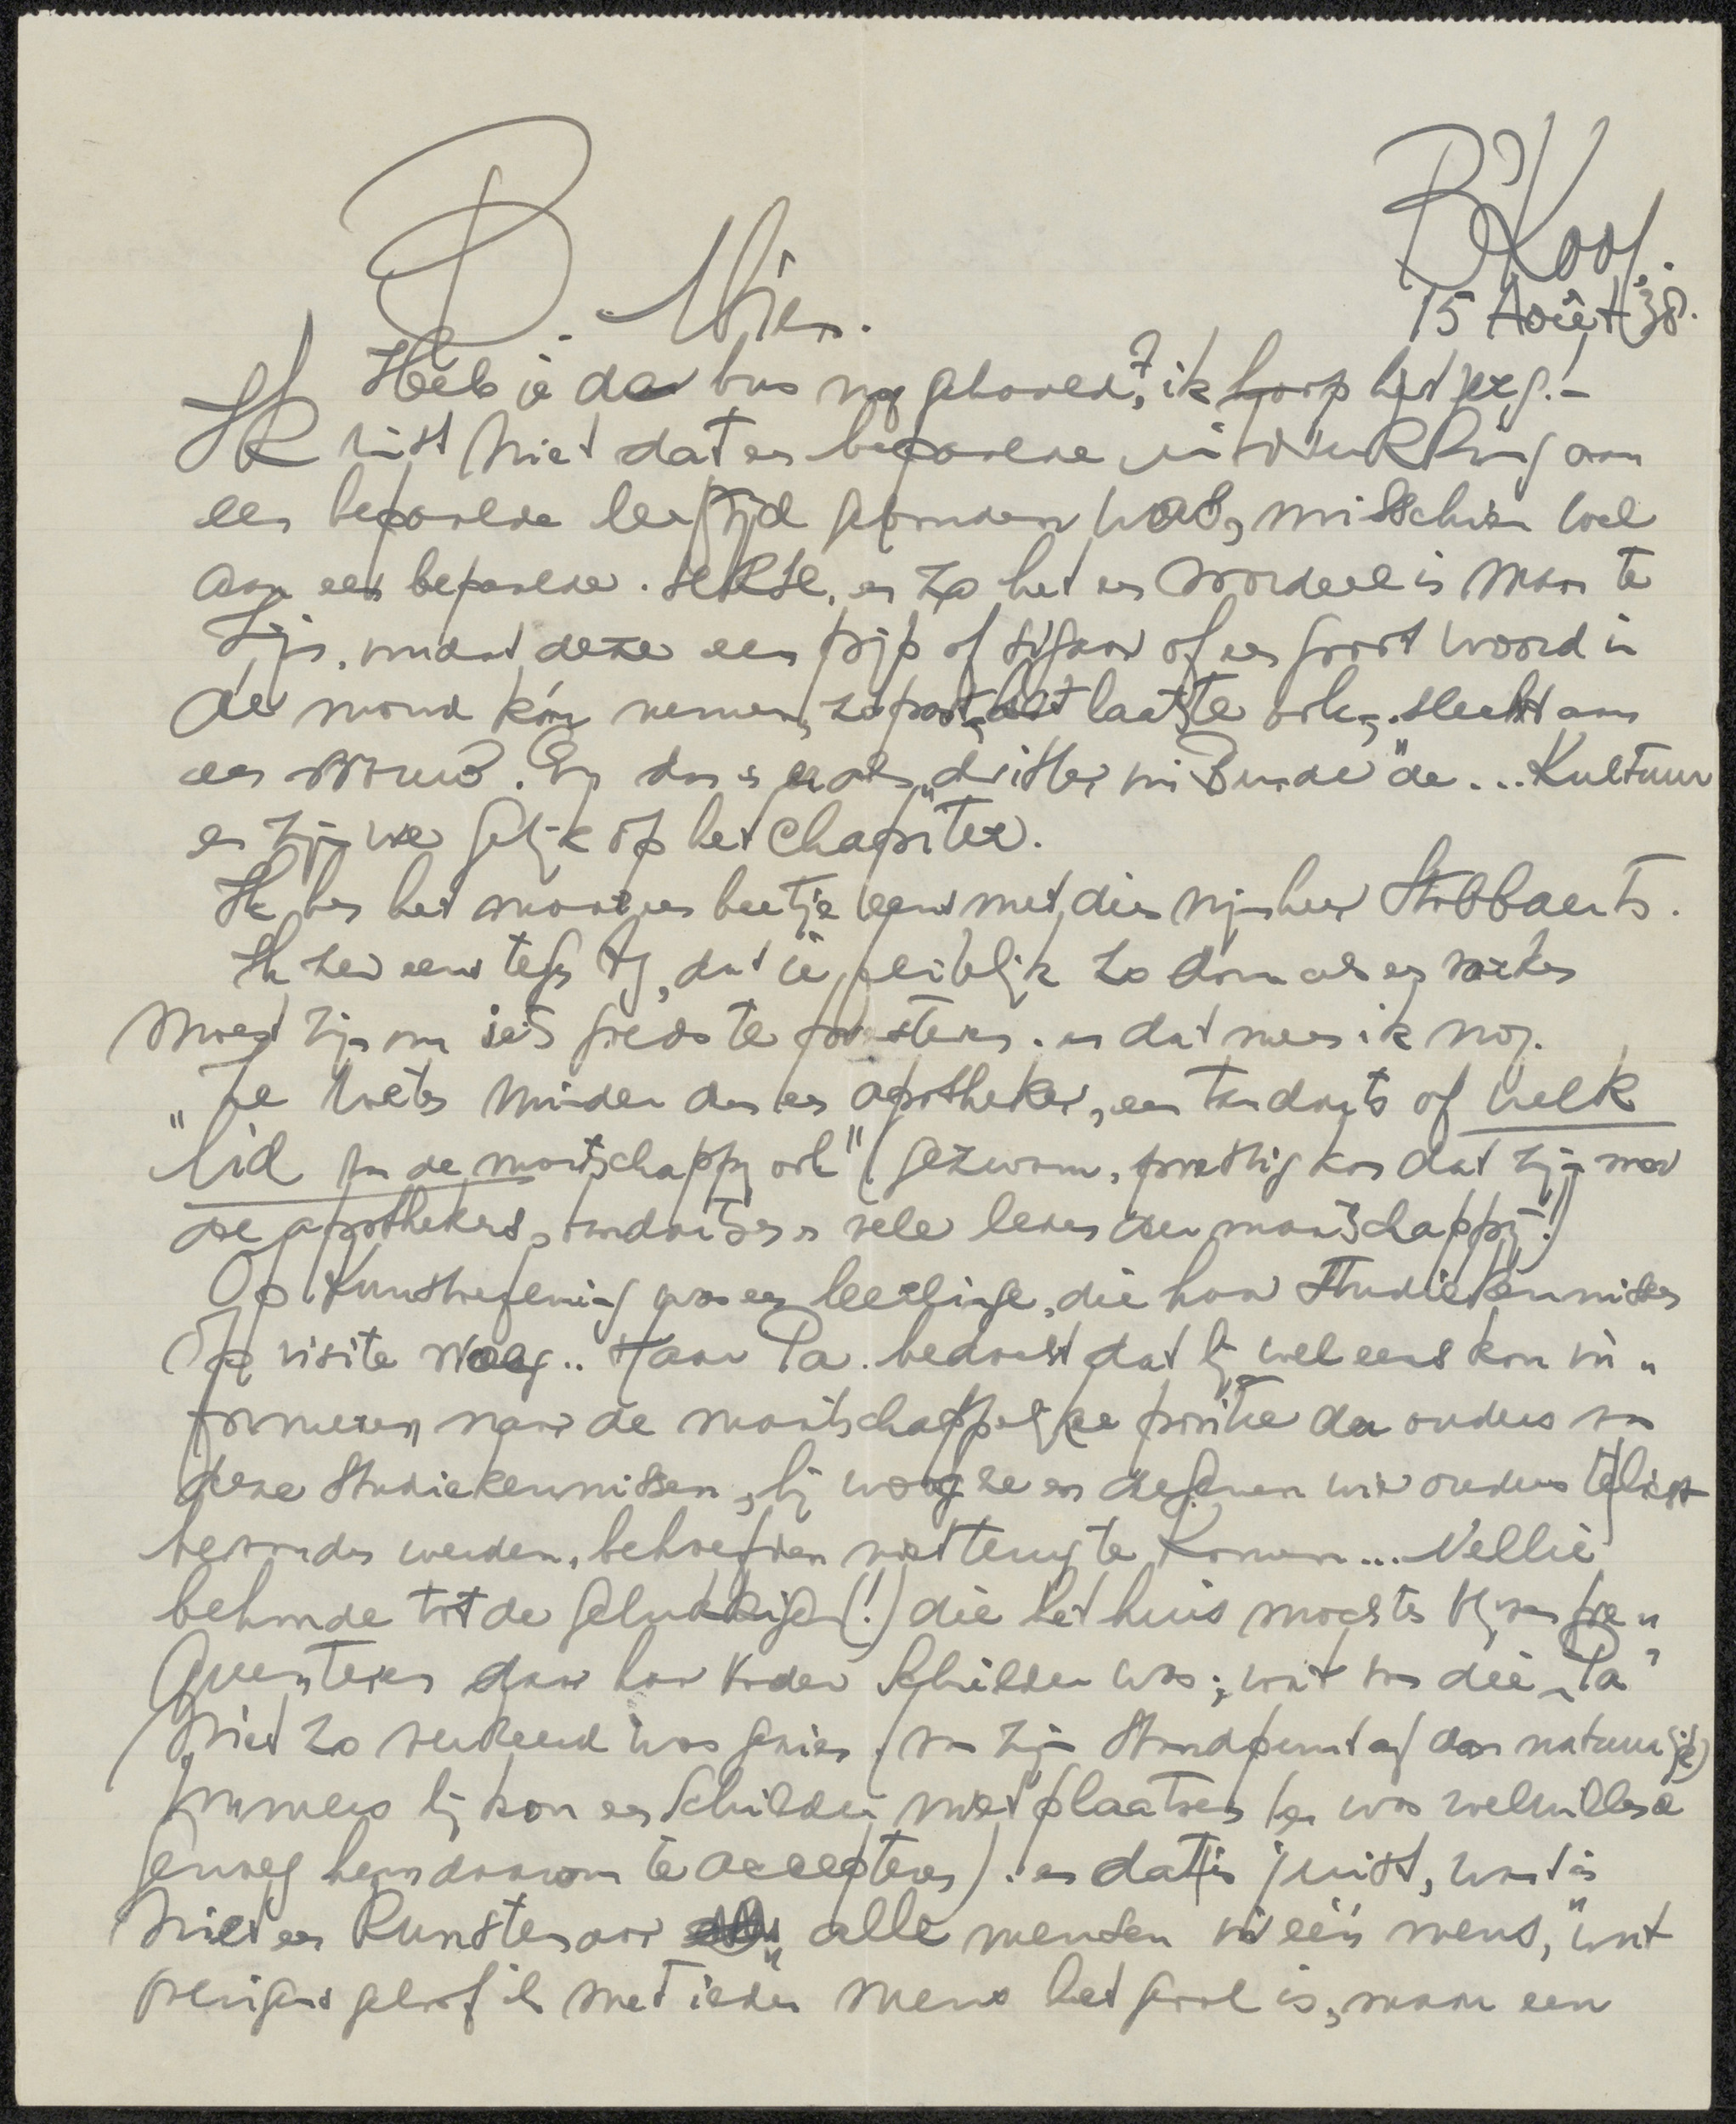 B'Koof.
15 Août '38.
B. Wien.
Heb je de bus nog gehaald? ik hoop het zeg!-
Ik wist niet dat een bepaalde uitdrukking aan
een bepaalde leeftijd gebonden was, misschien wel
aan een bepaalde sekse, en zo het een voordeel is man te
zijn, omdat deze een pijp of sigaar of een groot woord in
de mond kán nemen, zo past het laatste ook slecht aan
een vrouw. En dan is er als "dritter im Bunde" de... Kultuur
en zijn we gelijk op het chapiter.
Ik ben het maar een beetje eens met die mijnheer Stobbaerts.
Ik zei eens tegen Hg, dat je eigenlijk zo dom als een varken
moest zijn om iets goeds te presteren. en dat meen ik nog.
"Ze weten minder dan een apotheker, een tandarts of welk
lid van de maatschappij ook" (gezwam, prettig kan dat zijn met
de apothekers, tandartsen en vele leden der maatschappij!)
Op Kunstoefening was een leerlinge, die haar studiekennissen
op visite vroeg.. Haar Pa bedacht dat hij wel eens kon in„
formeren naar de maatschappelijke positie der ouders van
deze studiekennissen, hij woog ze en degenen wier ouders te licht
bevonden werden, behoefden niet terug te komen... Nellie
behoorde tot de gelukkigen (!) die het huis mochten blijven fre„
quenteren daar haar vader schilder was; wat van die "Pa"
niet zo verkeerd was gezien (van zijn standpunt af dan natuurlijk)
immers hij kon een schilder niet plaatsen (en was welwillend
genoeg hem daarom te accepteren). en dat is juist, want is
niet een kunstenaar "alle mensen in één mens," want
overigens geloof ik met ieder mens het geval is, maar een